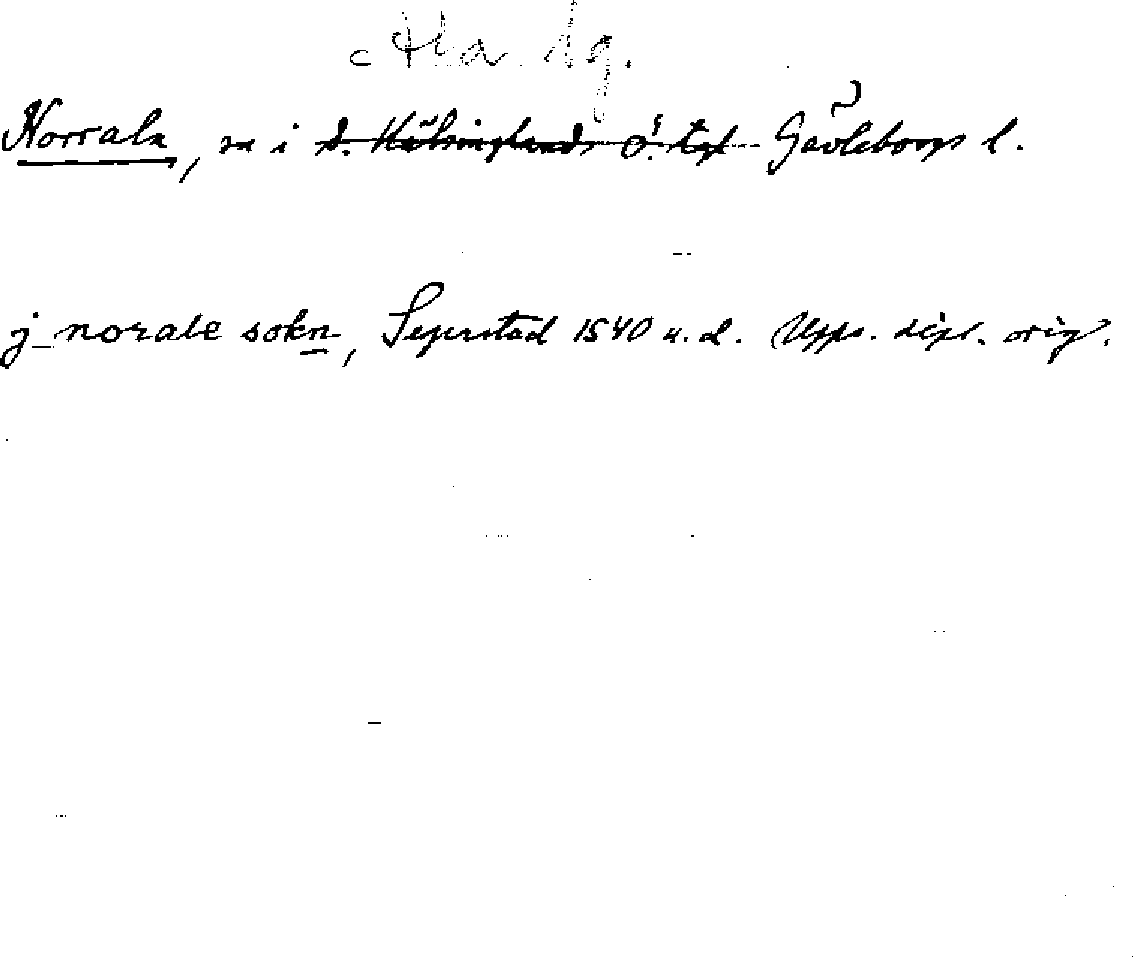 Ala tg.
Norrala, sn i s. Hälsinglands ö. tgl Gävleborgs l.
j norale sokn, Segerstad 1540 u. d. Upps. dipl. orig.